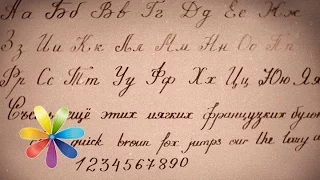 Аа Бб Вв Гг Дд Ее Жж
Зз Ии Кк Лл Мм Нн Оо Пп
Рр Сс Тт Уу Фф Хх Цц Юю Яя
Съешь ещё этих мягких французких булок
quick brown fox jumps over the lazy
1234567890